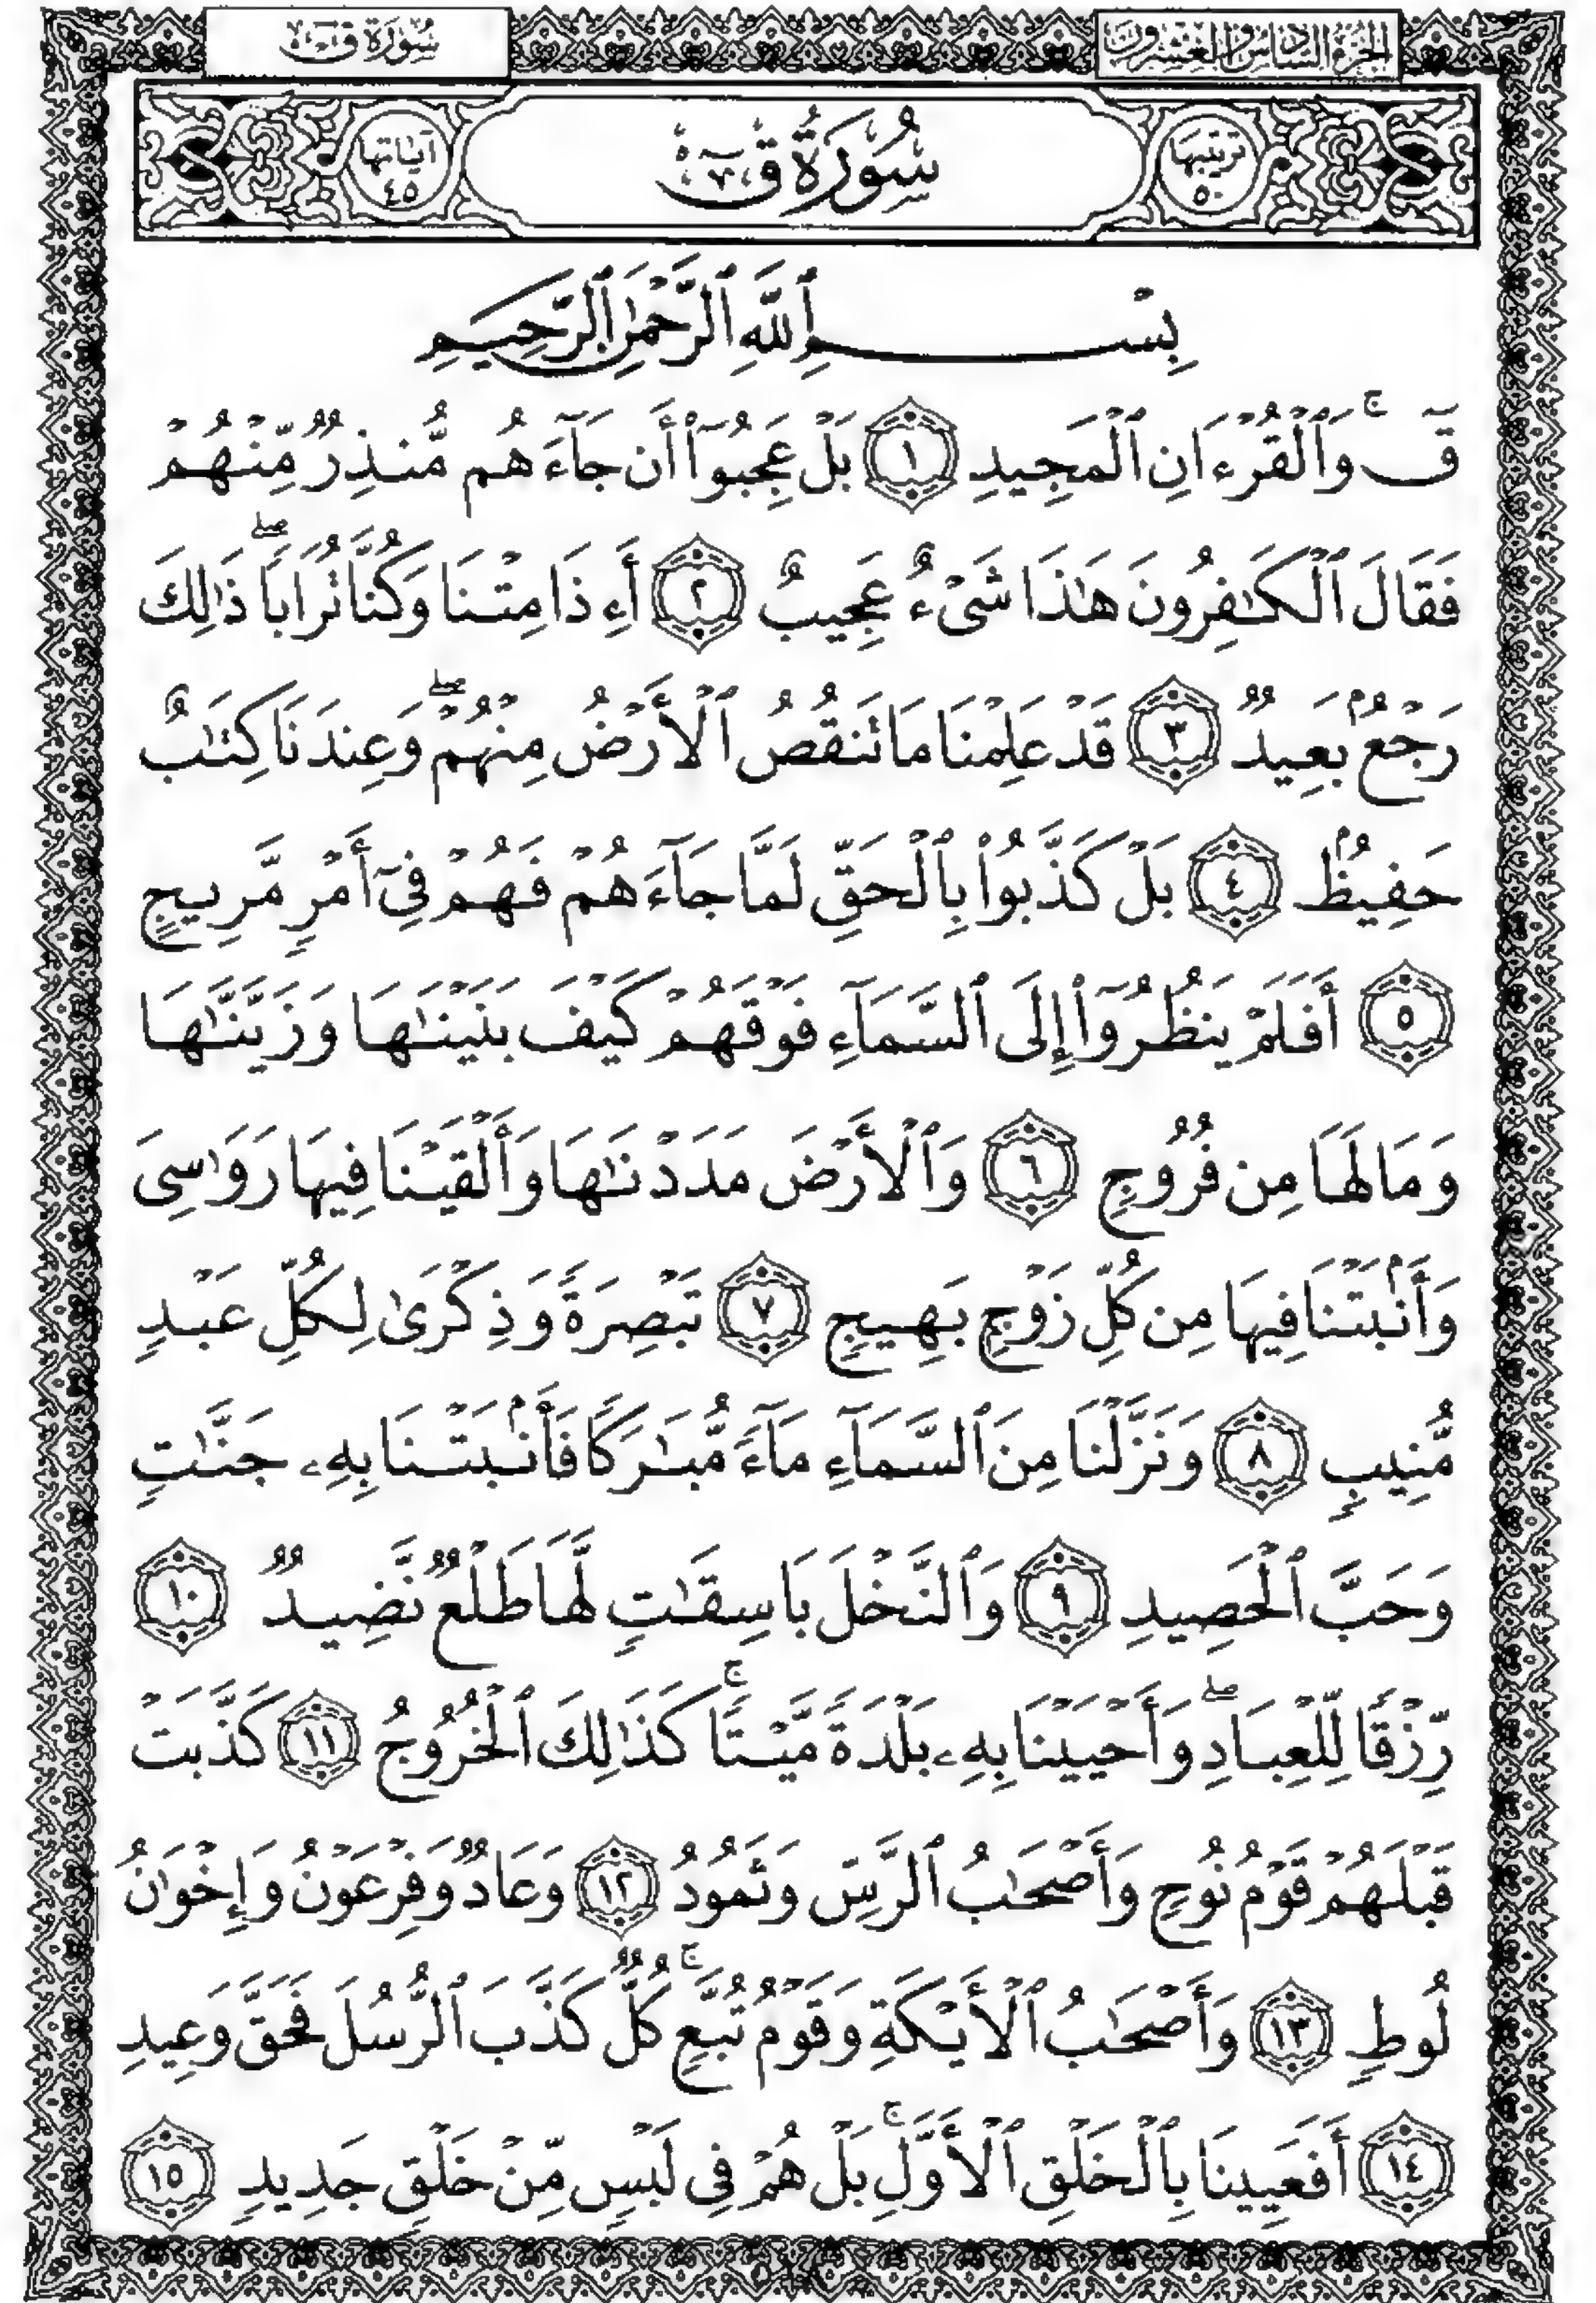 الجزء السادس والعشرون
سورة ق
ترتيبها ٥٠
سُورَةُ قٓ
آياتها ٤٥
بِسْمِ ٱللَّهِ ٱلرَّحْمَٰنِ ٱلرَّحِيمِ
قٓۚ وَٱلْقُرْءَانِ ٱلْمَجِيدِ ١ بَلْ عَجِبُوٓا۟ أَن جَآءَهُم مُّنذِرٌ مِّنْهُمْ
فَقَالَ ٱلْكَٰفِرُونَ هَٰذَا شَىْءٌ عَجِيبٌ ٢ أَءِذَا مِتْنَا وَكُنَّا تُرَابًاۖ ذَٰلِكَ
رَجْعٌۢ بَعِيدٌ ٣ قَدْ عَلِمْنَا مَا تَنقُصُ ٱلْأَرْضُ مِنْهُمْۖ وَعِندَنَا كِتَٰبٌ
حَفِيظٌۢ ٤ بَلْ كَذَّبُوا۟ بِٱلْحَقِّ لَمَّا جَآءَهُمْ فَهُمْ فِىٓ أَمْرٍ مَّرِيجٍ
٥ أَفَلَمْ يَنظُرُوٓا۟ إِلَى ٱلسَّمَآءِ فَوْقَهُمْ كَيْفَ بَنَيْنَٰهَا وَزَيَّنَّٰهَا
وَمَا لَهَا مِن فُرُوجٍ ٦ وَٱلْأَرْضَ مَدَدْنَٰهَا وَأَلْقَيْنَا فِيهَا رَوَٰسِىَ
وَأَنۢبَتْنَا فِيهَا مِن كُلِّ زَوْجٍۭ بَهِيجٍ ٧ تَبْصِرَةً وَذِكْرَىٰ لِكُلِّ عَبْدٍ
مُّنِيبٍ ٨ وَنَزَّلْنَا مِنَ ٱلسَّمَآءِ مَآءً مُّبَٰرَكًا فَأَنۢبَتْنَا بِهِۦ جَنَّٰتٍ
وَحَبَّ ٱلْحَصِيدِ ٩ وَٱلنَّخْلَ بَاسِقَٰتٍ لَّهَا طَلْعٌ نَّضِيدٌ ١٠
رِّزْقًا لِّلْعِبَادِۖ وَأَحْيَيْنَا بِهِۦ بَلْدَةً مَّيْتًاۚ كَذَٰلِكَ ٱلْخُرُوجُ ١١ كَذَّبَتْ
قَبْلَهُمْ قَوْمُ نُوحٍ وَأَصْحَٰبُ ٱلرَّسِّ وَثَمُودُ ١٢ وَعَادٌ وَفِرْعَوْنُ وَإِخْوَٰنُ
لُوطٍ ١٣ وَأَصْحَٰبُ ٱلْأَيْكَةِ وَقَوْمُ تُبَّعٍۚ كُلٌّ كَذَّبَ ٱلرُّسُلَ فَحَقَّ وَعِيدِ
١٤ أَفَعَيِينَا بِٱلْخَلْقِ ٱلْأَوَّلِۚ بَلْ هُمْ فِى لَبْسٍ مِّنْ خَلْقٍ جَدِيدٍ ١٥